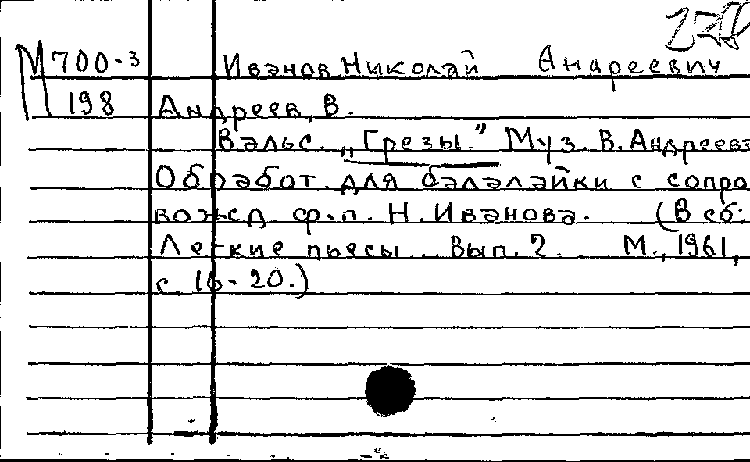 М 700-3 Иванов Николай Андреевич
198 Андреев, В.
Вальс „Грезы.” Муз. В. Андреева
Обработ. для балалайки с сопро
вожд. ф.п. Н. Иванова. (В сб:
Легкие пьесы. Вып. 2. М., 1961,
с. 16-20.)